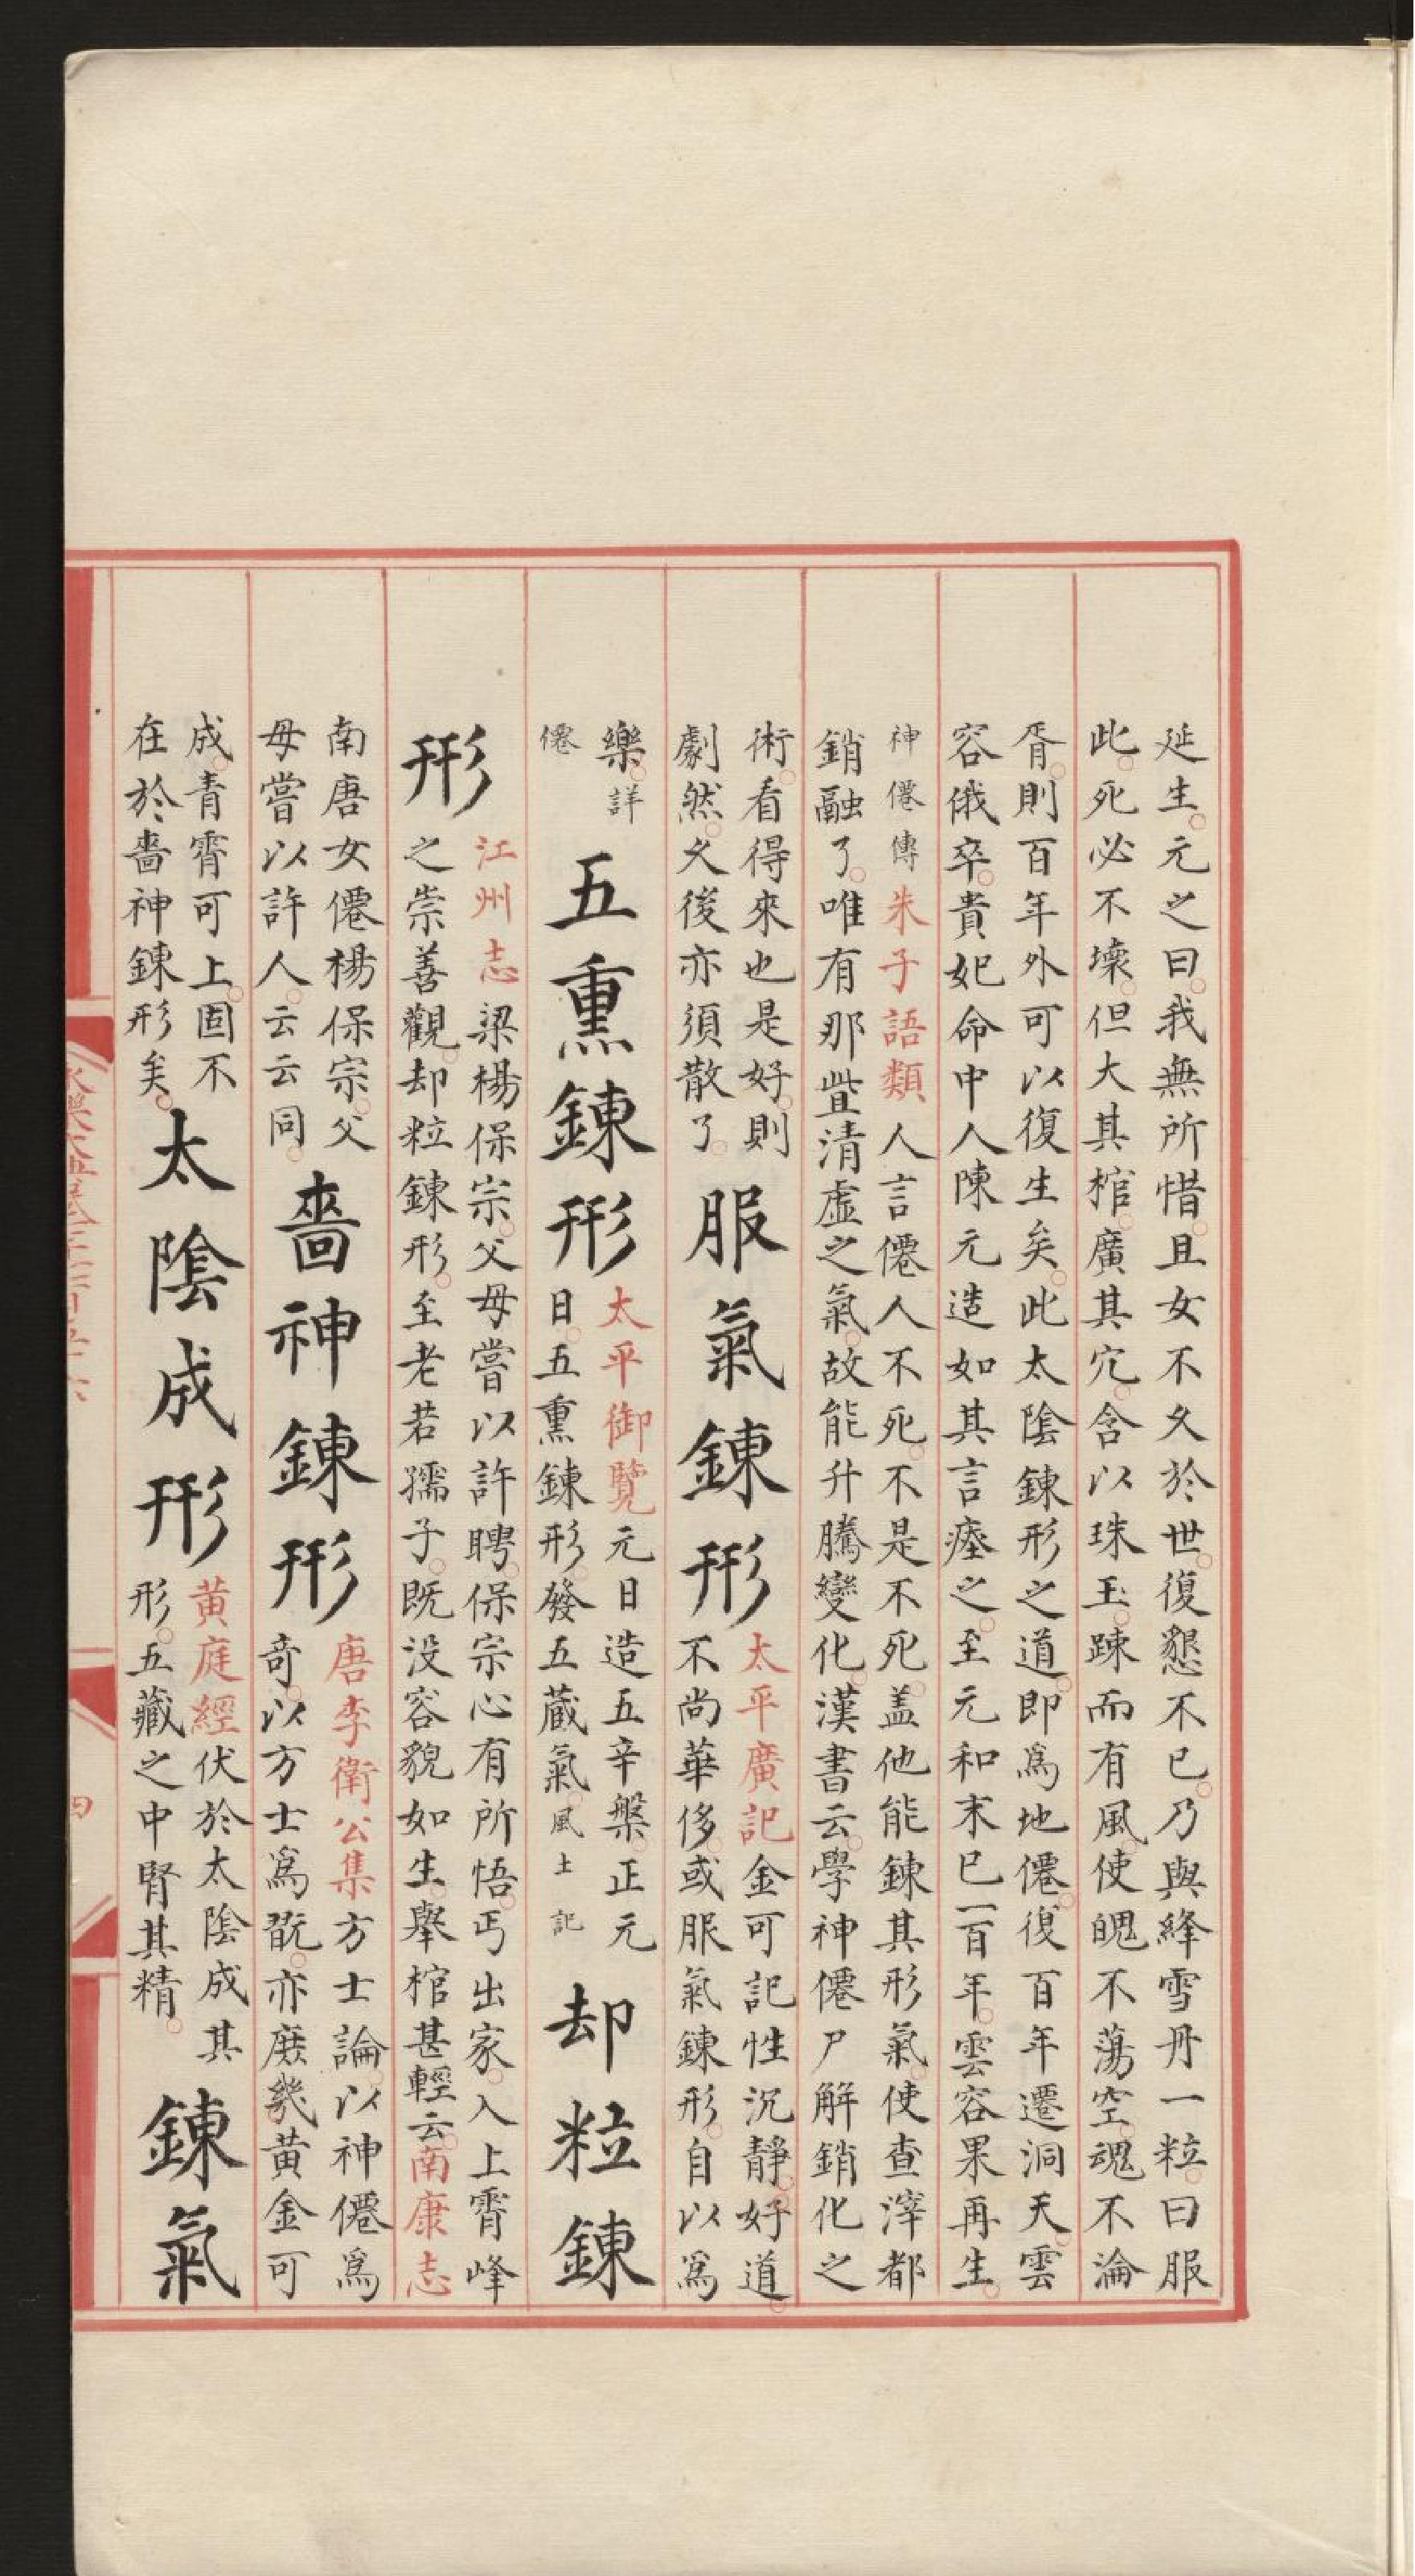 延生元之曰我無所惜且女不久於世復懇不已乃與絳雪丹一粒曰服
此死必不壞但大其棺廣其穴含以珠玉踈而有風使魄不蕩空魂不淪
胥則百年外可以復生矣此太陰鍊形之道即爲地僊復百年遷洞天雲
容俄卒貴妃命中人陳元造如其言瘞之至元和末已一百年雲容果再生
神僊傳朱子語類人言僊人不死不是不死盖他能鍊其形氣使查滓都
銷融了唯有那甓清虛之氣故能升騰變化漢書云學神僊尸解銷化之
術看得來也是好則
劇然久後亦須散了
服氣鍊形
太平廣記金可記性沉靜好道
不尚華侈或服氣鍊形自以爲
樂詳
僊
五熏鍊形
太平御覽元日造五辛槃正元
日五熏鍊形發五蔵氣風土記
却粒鍊
形
江州志梁楊保宗父母嘗以許聘保宗心有所悟丐出家入上霄峰
之崇善觀却粒鍊形至老若孺子既没容貌如生舉棺甚輕云南康志
南唐女僊楊保宗父
母嘗以許人云云同
嗇神鍊形
唐李衛公集方士論以神僊爲
奇以方士爲翫亦庶幾黄金可
成青霄可上固不
在於嗇神鍊形矣
太陰成形
黄庭經伏於太陰成其
形五藏之中腎其精
鍊氣
四